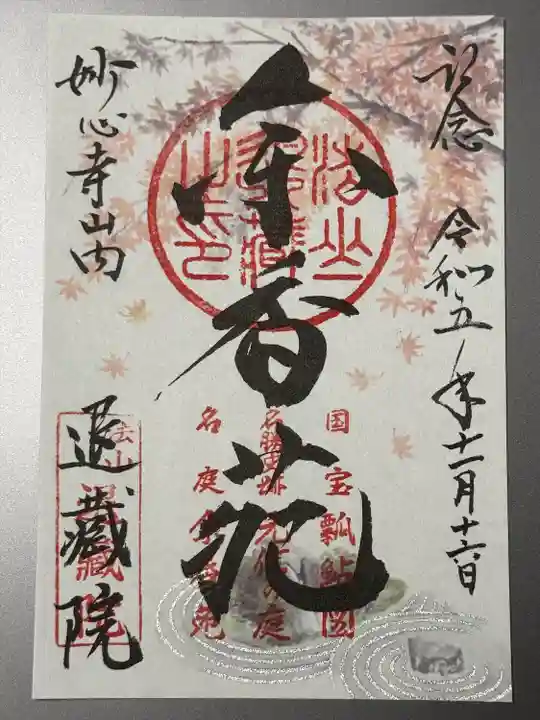 記念 令和五年十一月十六日
余香苑
国宝瓢鮎図
名勝史跡元信の庭
名庭余香苑
妙心寺山内
退藏院